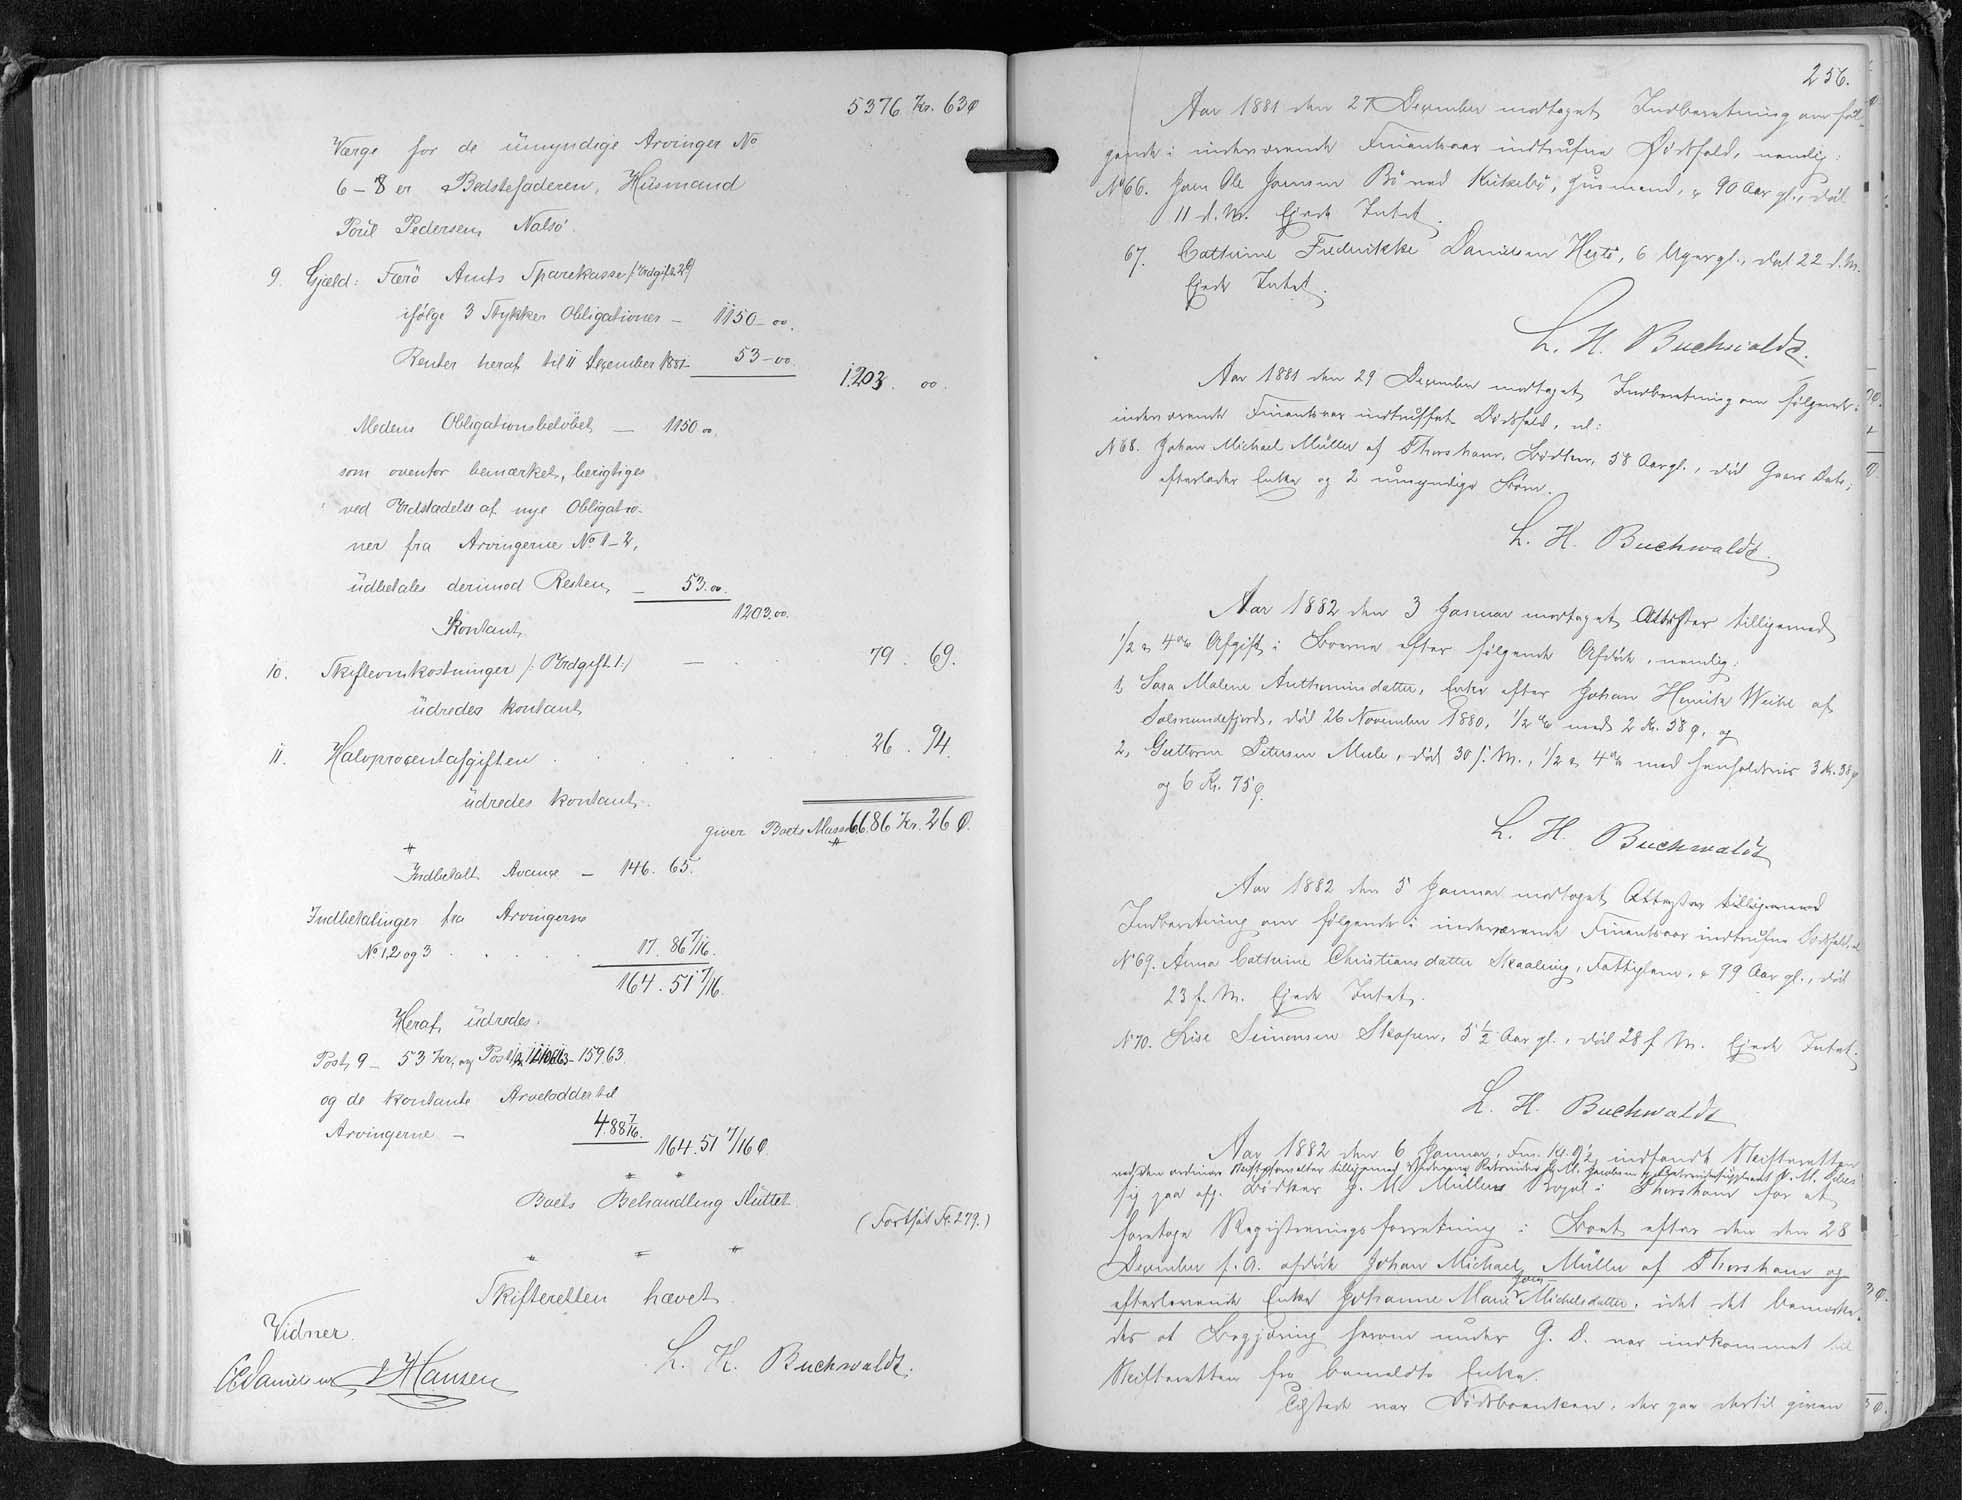 5376 Kr. 63 Ø
Værge for de umyndige Arvinger No
6-8 er Bedstefaderen, Husmand
Poul Pedersen, Nalsø.
9. Gjæld: Færø Amts Sparekasse /: Udgift 2 :/
ifølge 3 Stykker Obligationer - 1150-00.
Renter heraf til 11 December 1881 53-00.
1203. 00.
Medens Obligationsbeløbet - 1150 00.
som ovenfor bemærket, berigtiges
ved Udstædelse af nye Obligatio-
ner fra Arvingerne No 1-2,
udbetales derimod Resten, - 53.00.
1203.00.
Kontant.
10. Skifteomkostninger /: Udgift 1 :/ - 79. 69.
udredes kontant
11. Halvprocentafgiften . . . . . 26. 94.
udredes kontant.
giver Boets Massa 6686 Kr. 26 Ø.
Indbetalt Avance - 146. 65.
Indbetalinger fra Arvingerne
No 1,2 og 3 . . . . . 17. 86 7/16.
164. 51 7/16.
Heraf udredes.
Post 9 - 53 Kr, og Post - 159 63.
og de kontante Arvelodder til
Arvingerne - 4.88 7/16. 164. 51 7/16 Ø.
Boets Behandling sluttet.
(Fortsat Fo. 279.)
Skifteretten hævet.
Vidner.
Danielsen Hansen
L. H. Buchwaldt.
256.
Aar 1881 den 27 December modtaget Indberetning om føl-
gende i indeværende Finantsaar indtrufne Dødsfald, nemlig:
No 66. Joen Ole Joensen Bø ved Kirkebø, Husmand, 90 Aar gl., død
11 d. M. Ejede Intet.
67. Cathrine Fredrikke Danielsen Hestø, 6 Uger gl., død 22 d. M.
Ejede Intet.
L. H. Buchwaldt.
Aar 1881 den 29 December modtaget Indberetning om følgende i
indeværende Finantsaar indtruffet Dødsfald, nl:
No 68. Johan Michael Müller af Thorshavn, Bødker, 58 Aar gl., død Gaars Dato,
efterlader Enke og 2 umyndige Børn.
L. H. Buchwaldt.
Aar 1882 den 3 Januar modtaget Attester tilligemed
1/2 & 4% Afgift i Boerne efter følgende Afdøde, nemlig:
1, Sara Malene Anthoniusdatter, Enke efter Johan Henrik Weihe af
Sølmundefjord, død 26 November 1880, 1/2 % med 2 Kr. 38 Ø, og
2, Guttorm Petersen Mule, død 30 f. M., 1/2 & 4% med henholdsvis 3 Kr. 38 Ø
og 6 Kr. 75 Ø.
L. H. Buchwaldt
Aar 1882 den 5 Januar modtaget Attester tilligemed
Indberetning om følgende i indeværende Finantsaar indtrufne Dødsfald, nl
No 69. Anna Cathrine Christiansdatter Skaaling, Fattiglem, 99 Aar gl., død
23 f. M. Ejede Intet.
No 70. Lise Simonsen Skopun, 5 1/2 Aar gl., død 28 f. M. Ejede Intet.
L. H. Buchwaldt
Aar 1882 den 6 Januar, Fm. Kl. 9 1/2 indfandt Skifteretten
ved den ordinære Skifteforvalter tilligemed Vidnerne
sig paa afg. Bødker J. M. Müllers Bopæl i Thorshavn for at
foretage Registreringsforretning i Boet efter den den 28
December f. A. afdøde Johan Michael Müller af Thorshavn og
efterlevende Enke Johanne Marie Joen-Michelsdatter, idet det bemærke-
des at Begjæring herom under G. D. var indkommet til
Skifteretten fra bemeldte Enke.
Tilstede var Dødsboenken, der paa dertil given